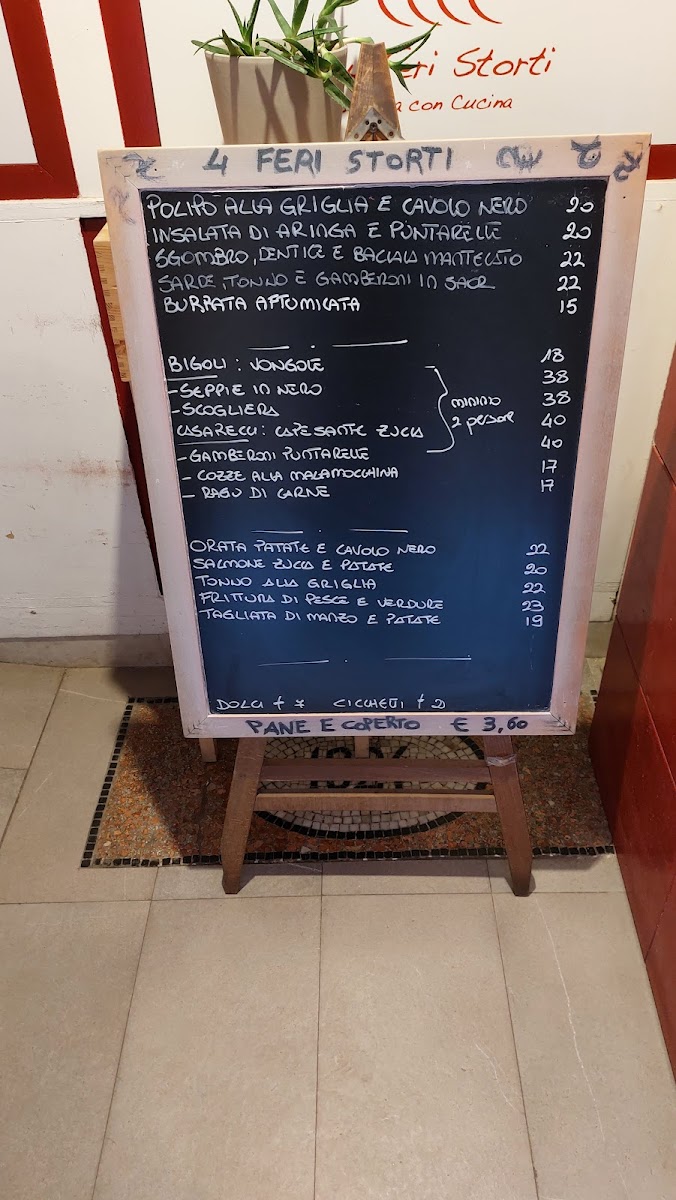 eri Storti
a con Cucina
4 FERI STORTI
POLIPO ALLA GRIGLIA E CAVOLO NERO 20
INSALATA DI ARINGA E PUNTARELLE 20
SGOMBRO, DENTICE E BACCALÀ MANTECATO 22
SARDE, TONNO E GAMBERONI IN SAOR 22
BURRATA AFFUMICATA 15
BIGOLI: VONGOLE 18
-SEPPIE IN NERO 38
-SCOGLIERA 38
MINIMO
2 PERSONE
CASARECCI: CAPESANTE ZUCCA 40
-GAMBERONI PUNTARELLE 40
- COZZE ALLA MALAMOCCHINA 17
- RAGÙ DI CARNE 17
ORATA PATATE E CAVOLO NERO 22
SALMONE ZUCCA E PATATE 20
TONNO ALLA GRIGLIA 22
FRITTURA DI PESCE E VERDURE 23
TAGLIATA DI MANZO E PATATE 19
DOLCI € 7 CICCHETTI € 2
PANE E COPERTO € 3,60